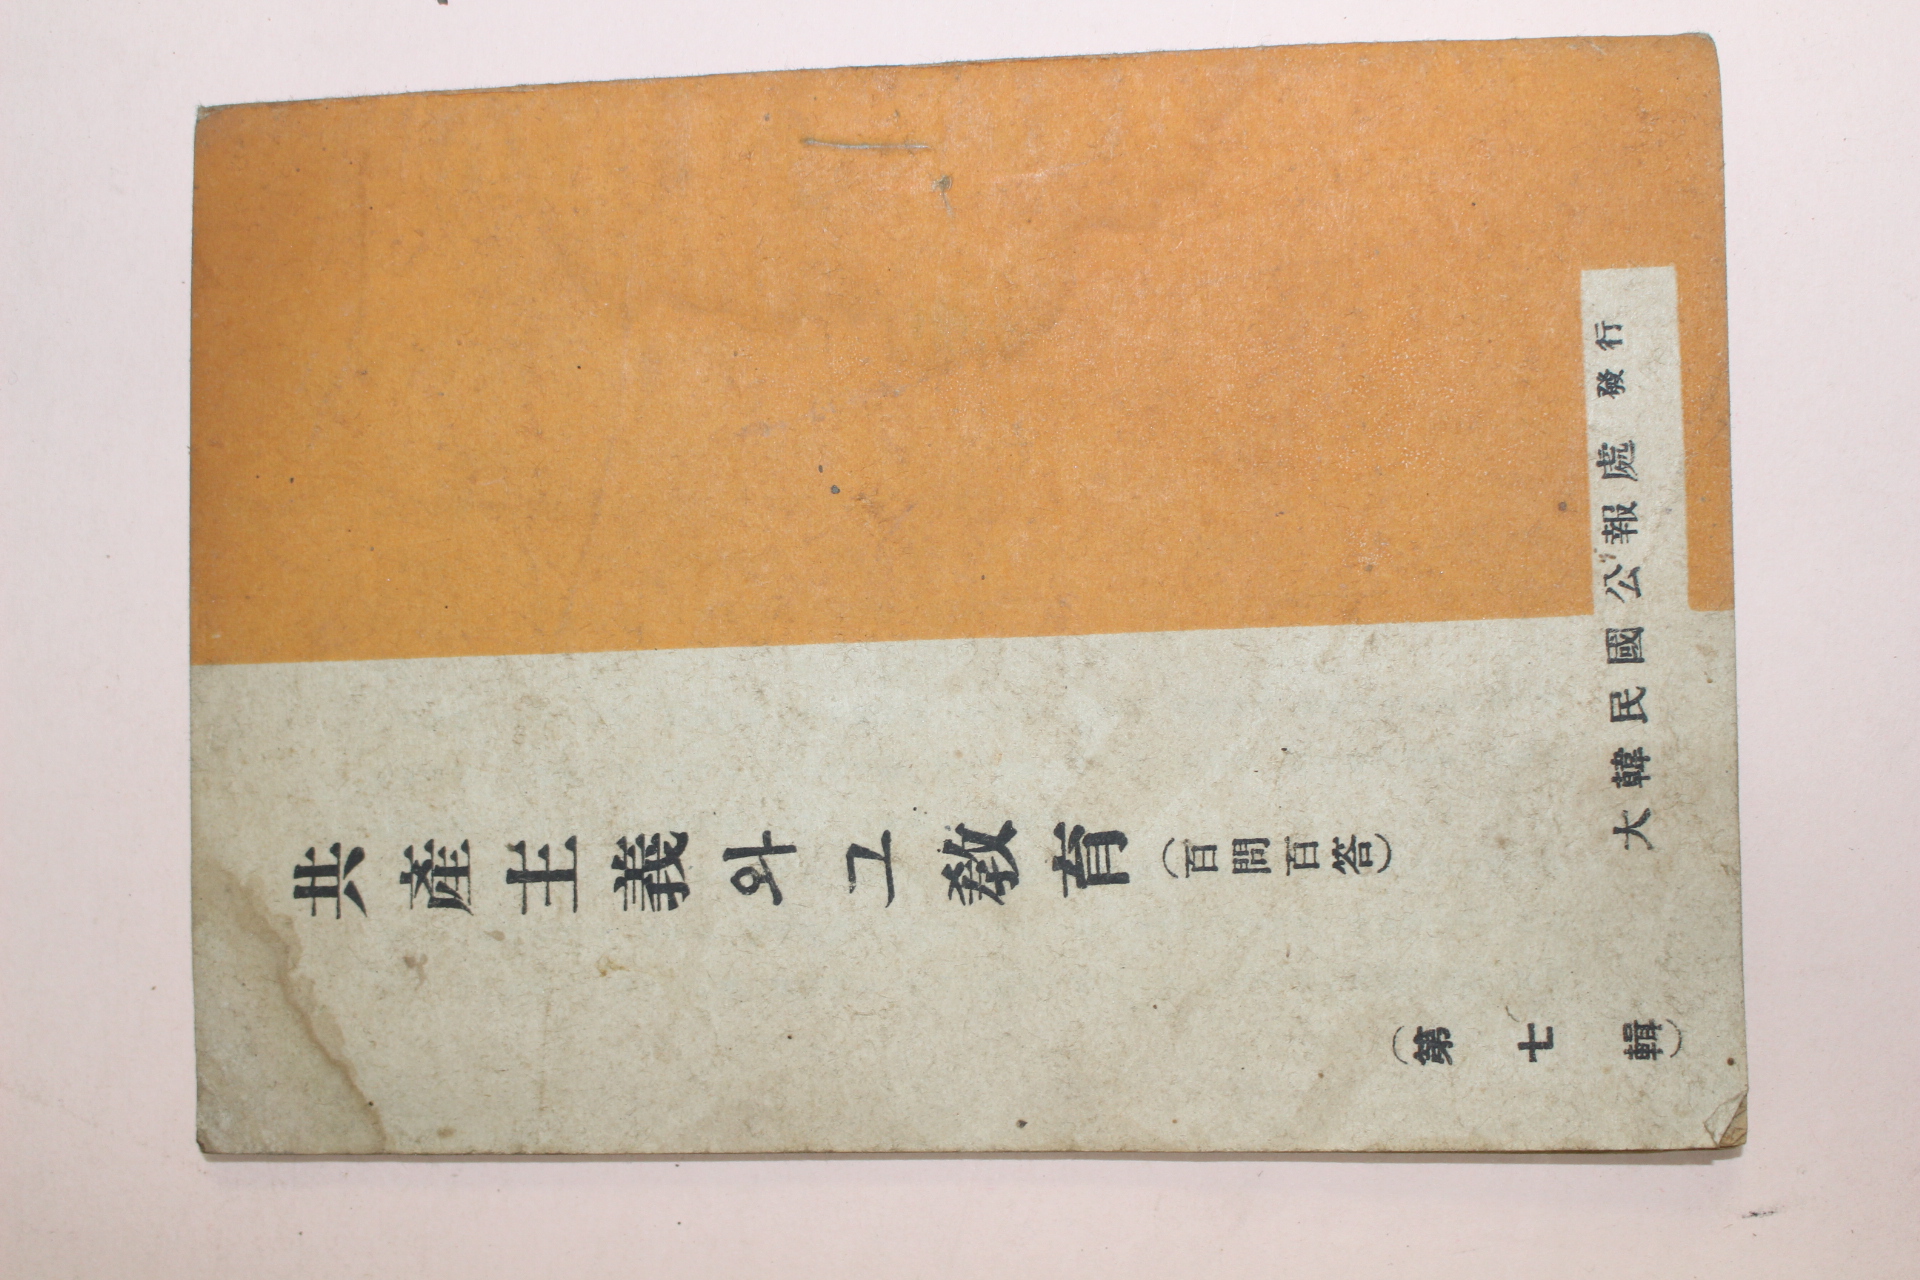 共產主義와그敎育(百問百答)
(第七輯)
大韓民國公報處發行